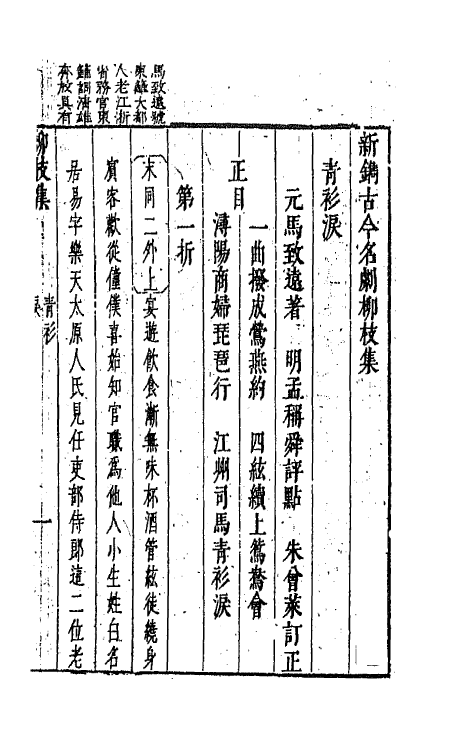 新鐫古今名劇柳枝集
青衫淚
元馬致遠著　明孟稱舜評點　朱曾萊訂正
正目
一曲撥成鶯燕約　四絃續上鴛鴦會
潯陽商婦琵琶行　江州司馬青衫淚
第一折
末同二外上宴遊飲食漸無味杯酒管絃徒繞身
賓客歡從僮僕喜始知官職爲他人小生姓白名
居易字樂天太原人氏見任吏部侍郎這二位老
柳枝集
青衫
一
馬致遠號
東籬大都
人老江浙
省務官東